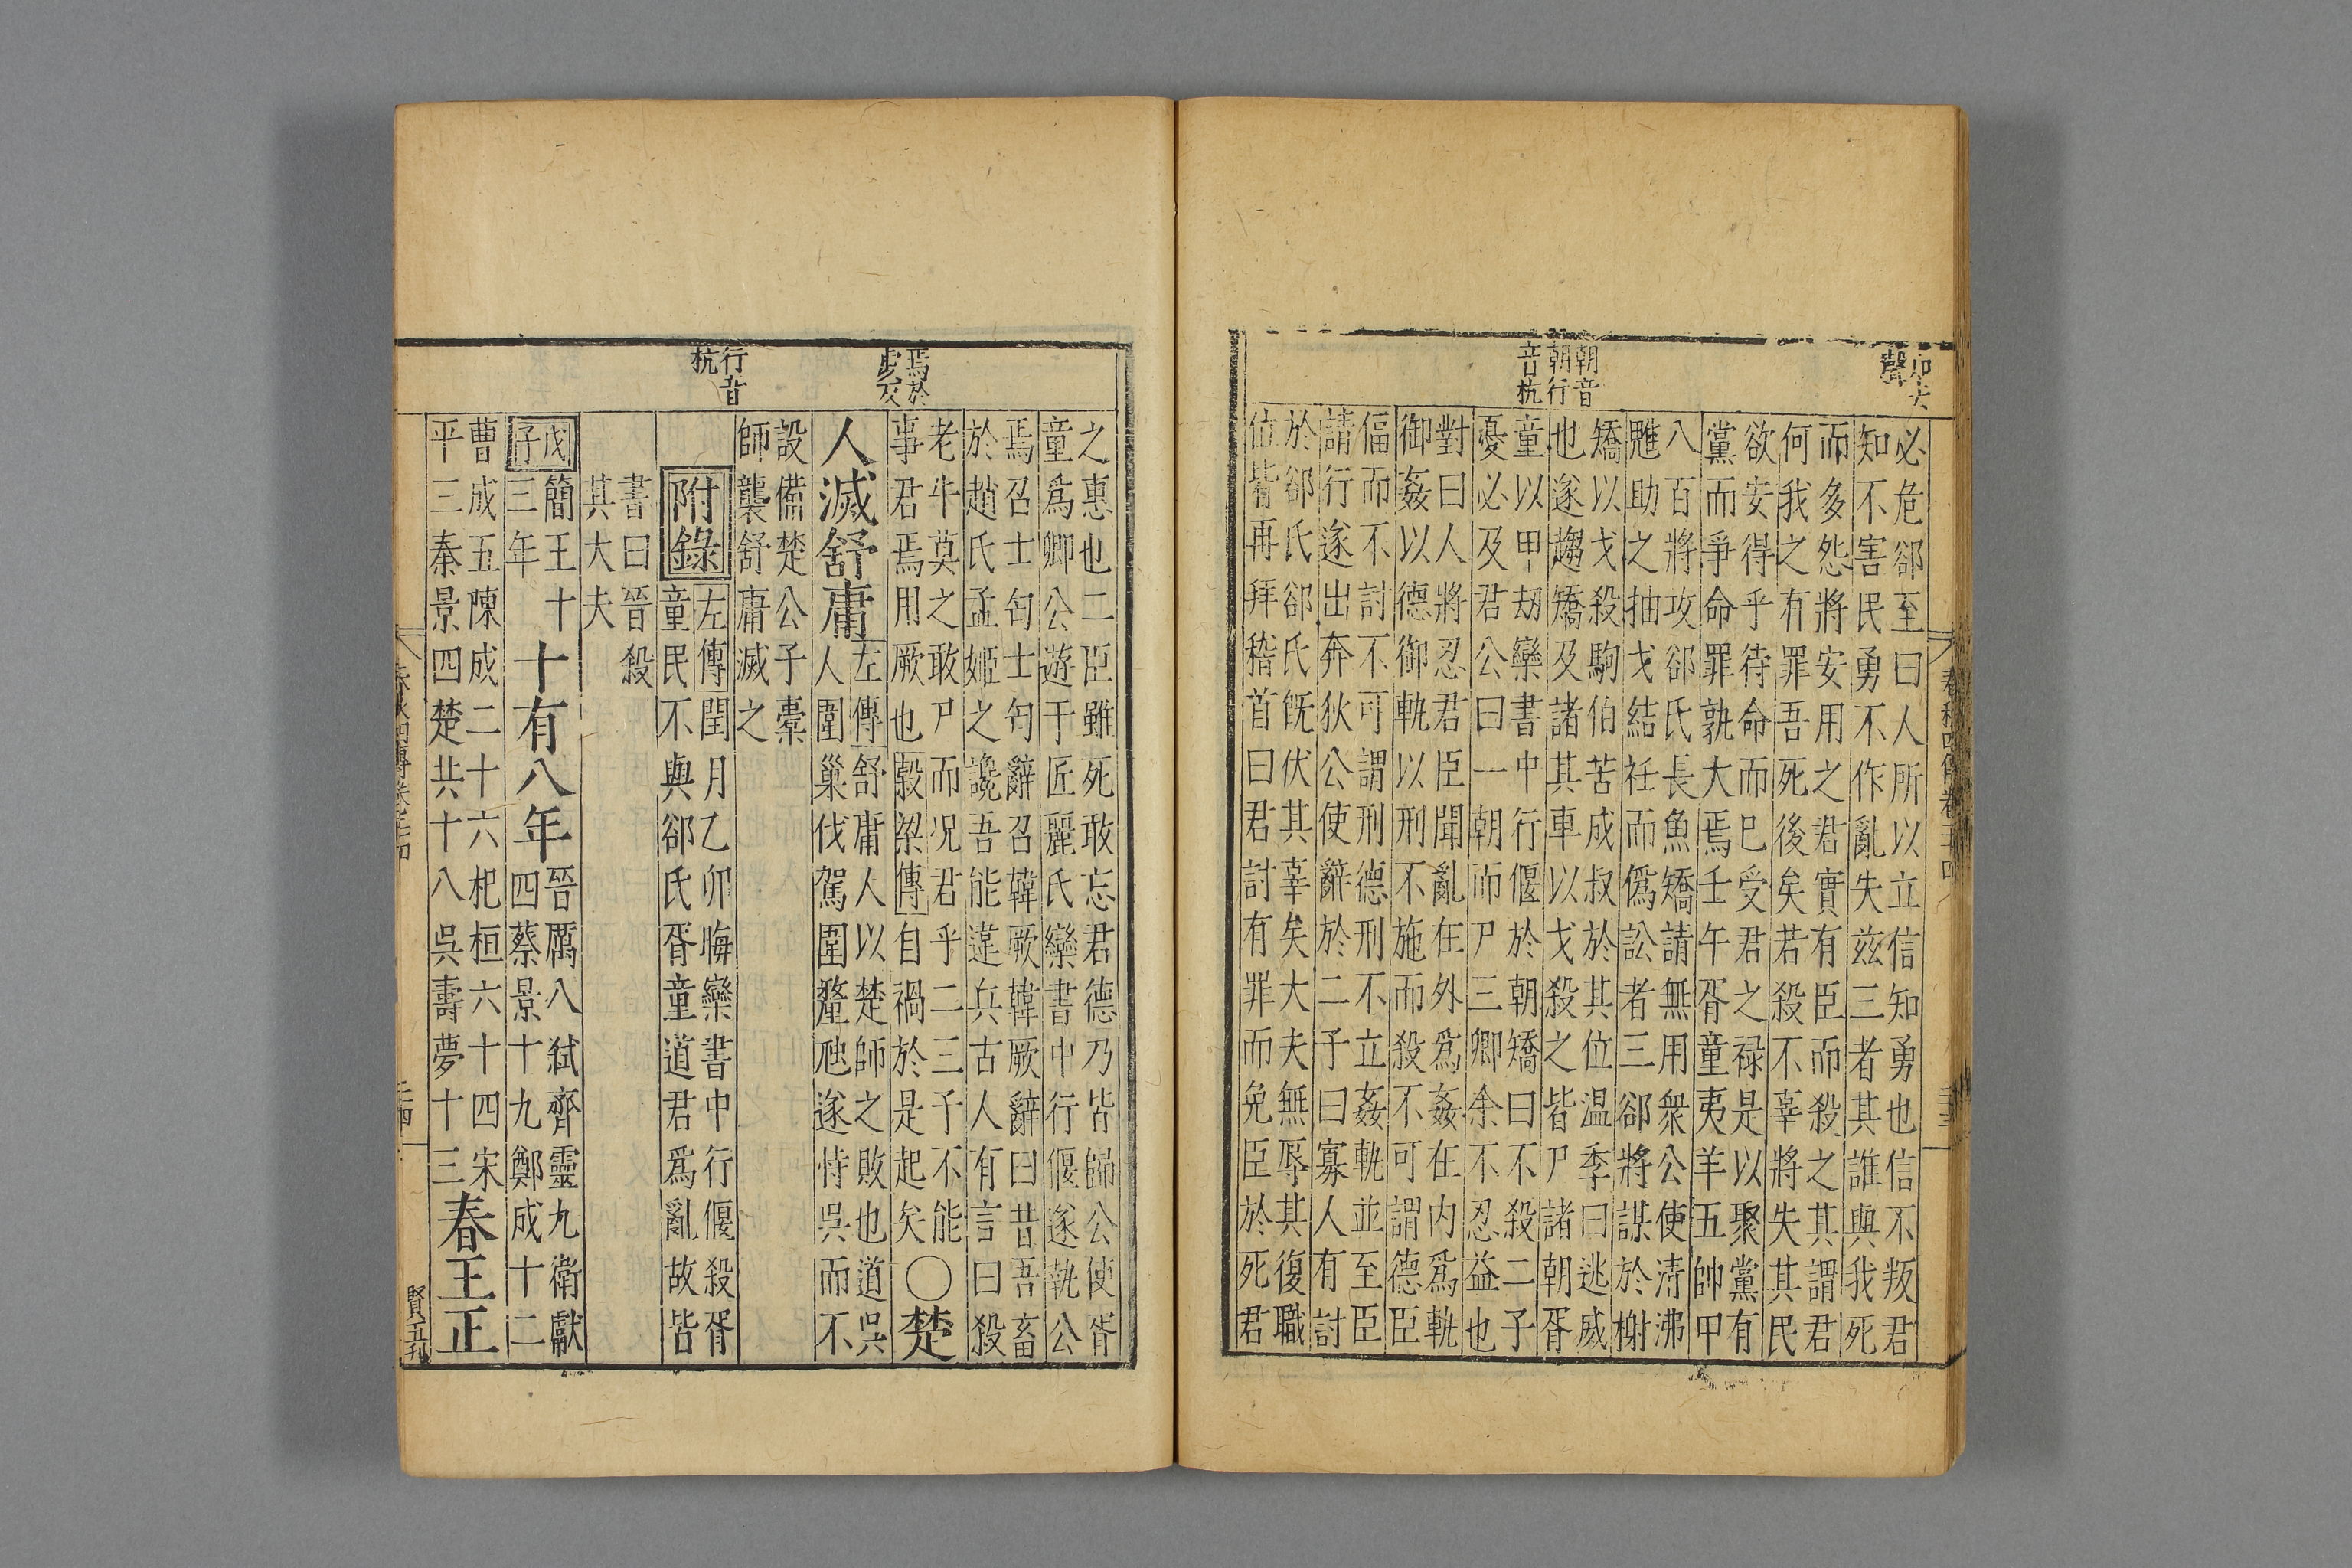 聲
必危郤至曰人所以立信知勇也信不叛君
知不害民勇不作亂失兹三者其誰與我死
而多怨將安用之君實有臣而殺之其謂君
何我之有罪吾死後矣若殺不辜將失其民
欲安得乎待命而已受君之禄是以聚黨有
黨而爭命罪孰大焉壬午胥童夷羊五帥甲
八百將攻郤氏長魚矯請無用衆公使清沸
魋助之抽戈結衽而僞訟者三郤將謀於榭
矯以戈殺駒伯苦成叔於其位温季曰逃威
也遂趨矯及諸其車以戈殺之皆尸諸朝胥
童以甲劫欒書中行偃於朝矯曰不殺二子
憂必及君公曰一朝而尸三卿余不忍益也
對曰人將忍君臣聞亂在外爲姦在内爲軌
御姦以德御軌以刑不施而殺不可謂德臣
偪而不討不可謂刑德刑不立姦軌並至臣
請行遂出奔狄公使辭於二子曰寡人有討
於郤氏郤氏旣伏其辜矣大夫無辱其復職
位皆再拜稽首曰君討有罪而免臣於死君
朝音
朝行
音杭
之惠也二臣雖死敢忘君德乃皆歸公使胥
童爲卿公遊于匠麗氏欒書中行偃遂執公
焉召士匄士匄辭召韓厥韓厥辭曰昔吾畜
於趙氏孟姬之讒吾能違兵古人有言曰殺
老牛莫之敢尸而况君乎二三子不能
事君焉用厥也穀梁傳自禍於是起矣〇楚
人滅舒庸左傳舒庸人以楚師之敗也道吳
人圍巢伐駕圍釐虺遂恃吳而不
設備楚公子橐
師襲舒庸滅之
附錄左傳閏月乙卯晦欒書中行偃殺胥
童民不與郤氏胥童道君爲亂故皆
書曰晉殺
其大夫
戊子簡王十
三年
十有八年晉厲八弑齊靈九衛獻
四蔡景十九鄭成十二
曹成五陳成二十六杞桓六十四宋
平三秦景四楚共十八吳壽夢十三春王正
焉於
虔反
行音
杭